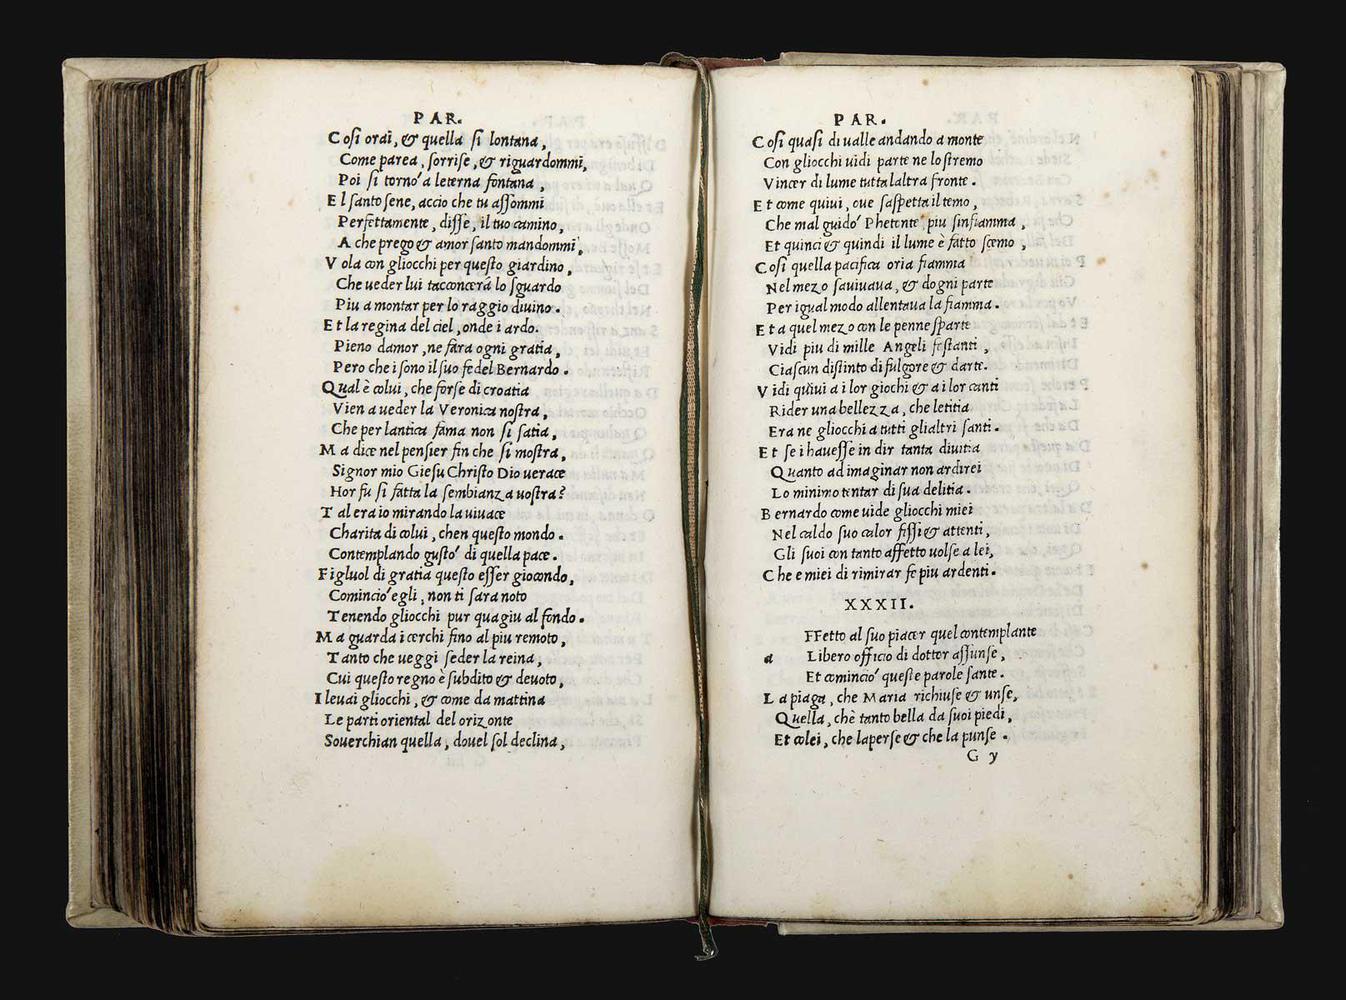 PAR.
Cosi orai, & quella si lontana,
Come parea, sorrise, & riguardommi,
Poi si torno' a leterna fontana,
El santo sene, accio che tu assommi
Perfettamente, disse, il tuo camino,
A che prego & amor santo mandommi,
Vola con gliocchi per questo giardino,
Che ueder lui tacconcerá lo sguardo
Piu a montar per lo raggio diuino.
Et la regina del ciel, onde i ardo.
Pieno damor, ne fara ogni gratia,
Pero che i sono il suo fedel Bernardo.
Qual è colui, che forse di croatia
Vien a ueder la Veronica nostra,
Che per lantica fama non si satia,
Ma dice nel pensier fin che si mostra,
Signor mio Giesu Christo Dio uerace
Hor fu si fatta la sembianza uostra?
Tal era io mirando la uiuace
Charita di colui, chen questo mondo.
Contemplando gusto' di quella pace.
Figluol di gratia questo esser giocondo,
Comincio' egli, non ti sara noto
Tenendo gliocchi pur qua giu al fondo.
Ma guarda i cerchi fino al piu remoto,
Tanto che ueggi seder la reina,
Cui questo regno è subdito & deuoto,
I leuai gliocchi, & come da mattina
Le parti oriental del orizonte
Souerchian quella, douel sol declina,
PAR.
Cosi quasi di ualle andando a monte
Con gliocchi uidi parte ne lo stremo
Vincer di lume tutta laltra fronte.
Et come quiui, oue saspetta il temo,
Che mal guido' Phetonte piu sinfiamma,
Et quinci & quindi il lume è fatto scemo,
Cosi quella pacifica oria fiamma
Nel mezo sauiuaua, & dogni parte
Per igual modo allentaua la fiamma.
Et a quel mezo con le penne sparte
Vidi piu di mille Angeli festanti,
Ciascun distinto di fulgore & darte.
Vidi quiui a i lor giochi & a i lor canti
Rider una bellezza, che letitia
Era ne gliocchi a tutti glialtri santi.
Et se i hauesse in dir tanta diuitia
Quanto ad imaginar non ardirei
Lo minimo tentar di sua delitia.
Bernardo come uide gliocchi miei
Nel caldo suo calor fissi & attenti,
Gli suoi con tanto affetto uolse a lei,
Che e miei di rimirar fe piu ardenti.
XXXII.
FFetto al suo piacer quel contemplante
a Libero officio di dottor assunse,
Et comincio' queste parole sante.
La piaga, che Maria richiuse & unse,
Quella, chè tanto bella da suoi piedi,
Et colei, che laperse & che la punse.
G y